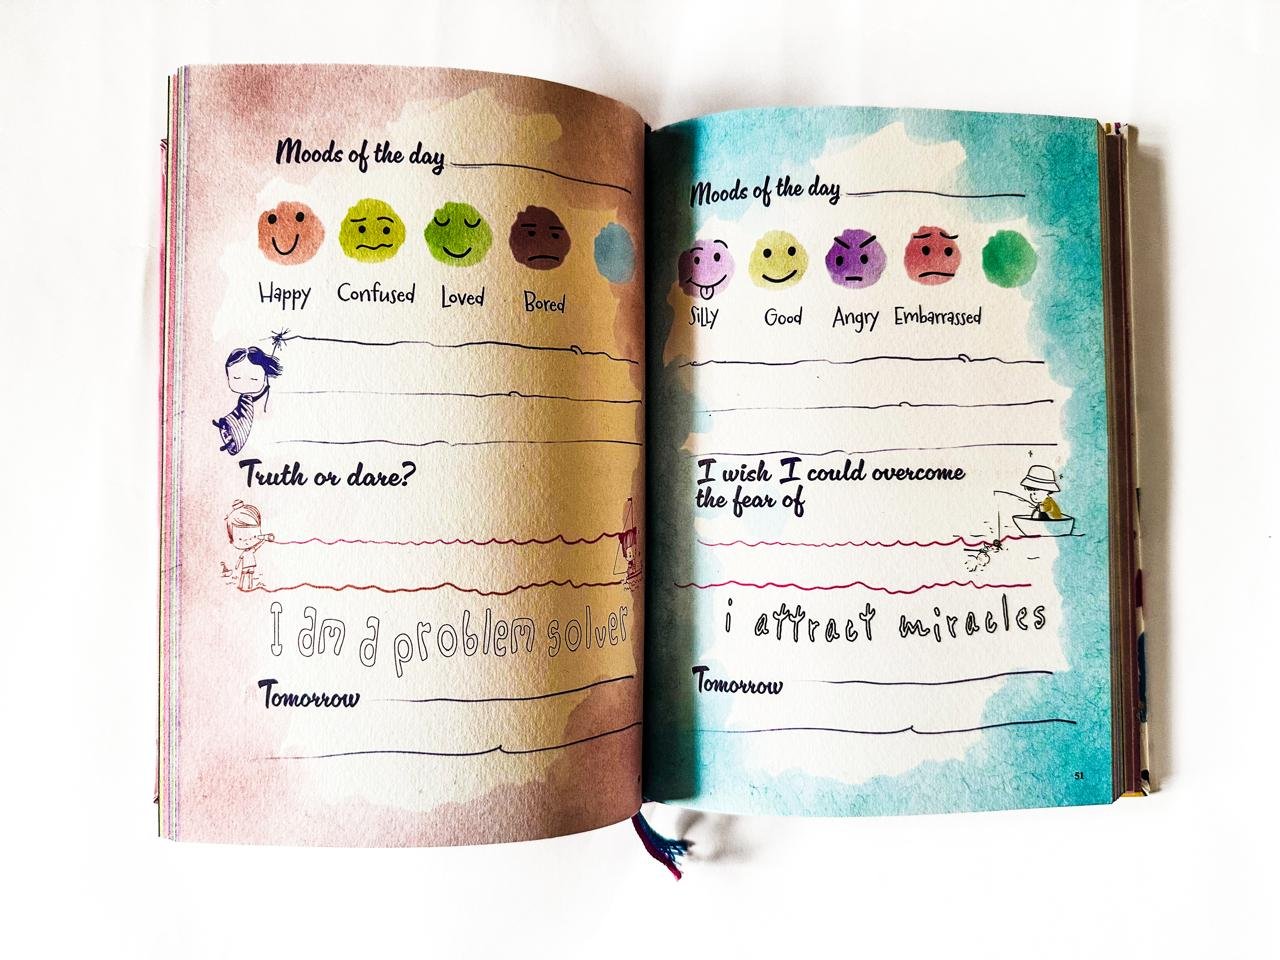 Moods of the day
Happy Confused Loved Bored
Truth or dare?
I am a problem solver
Tomorrow
Moods of the day
SiLLY Good Angry Embarrassed
I wish I could overcome
the fear of
i attract miracles
Tomorrow
51